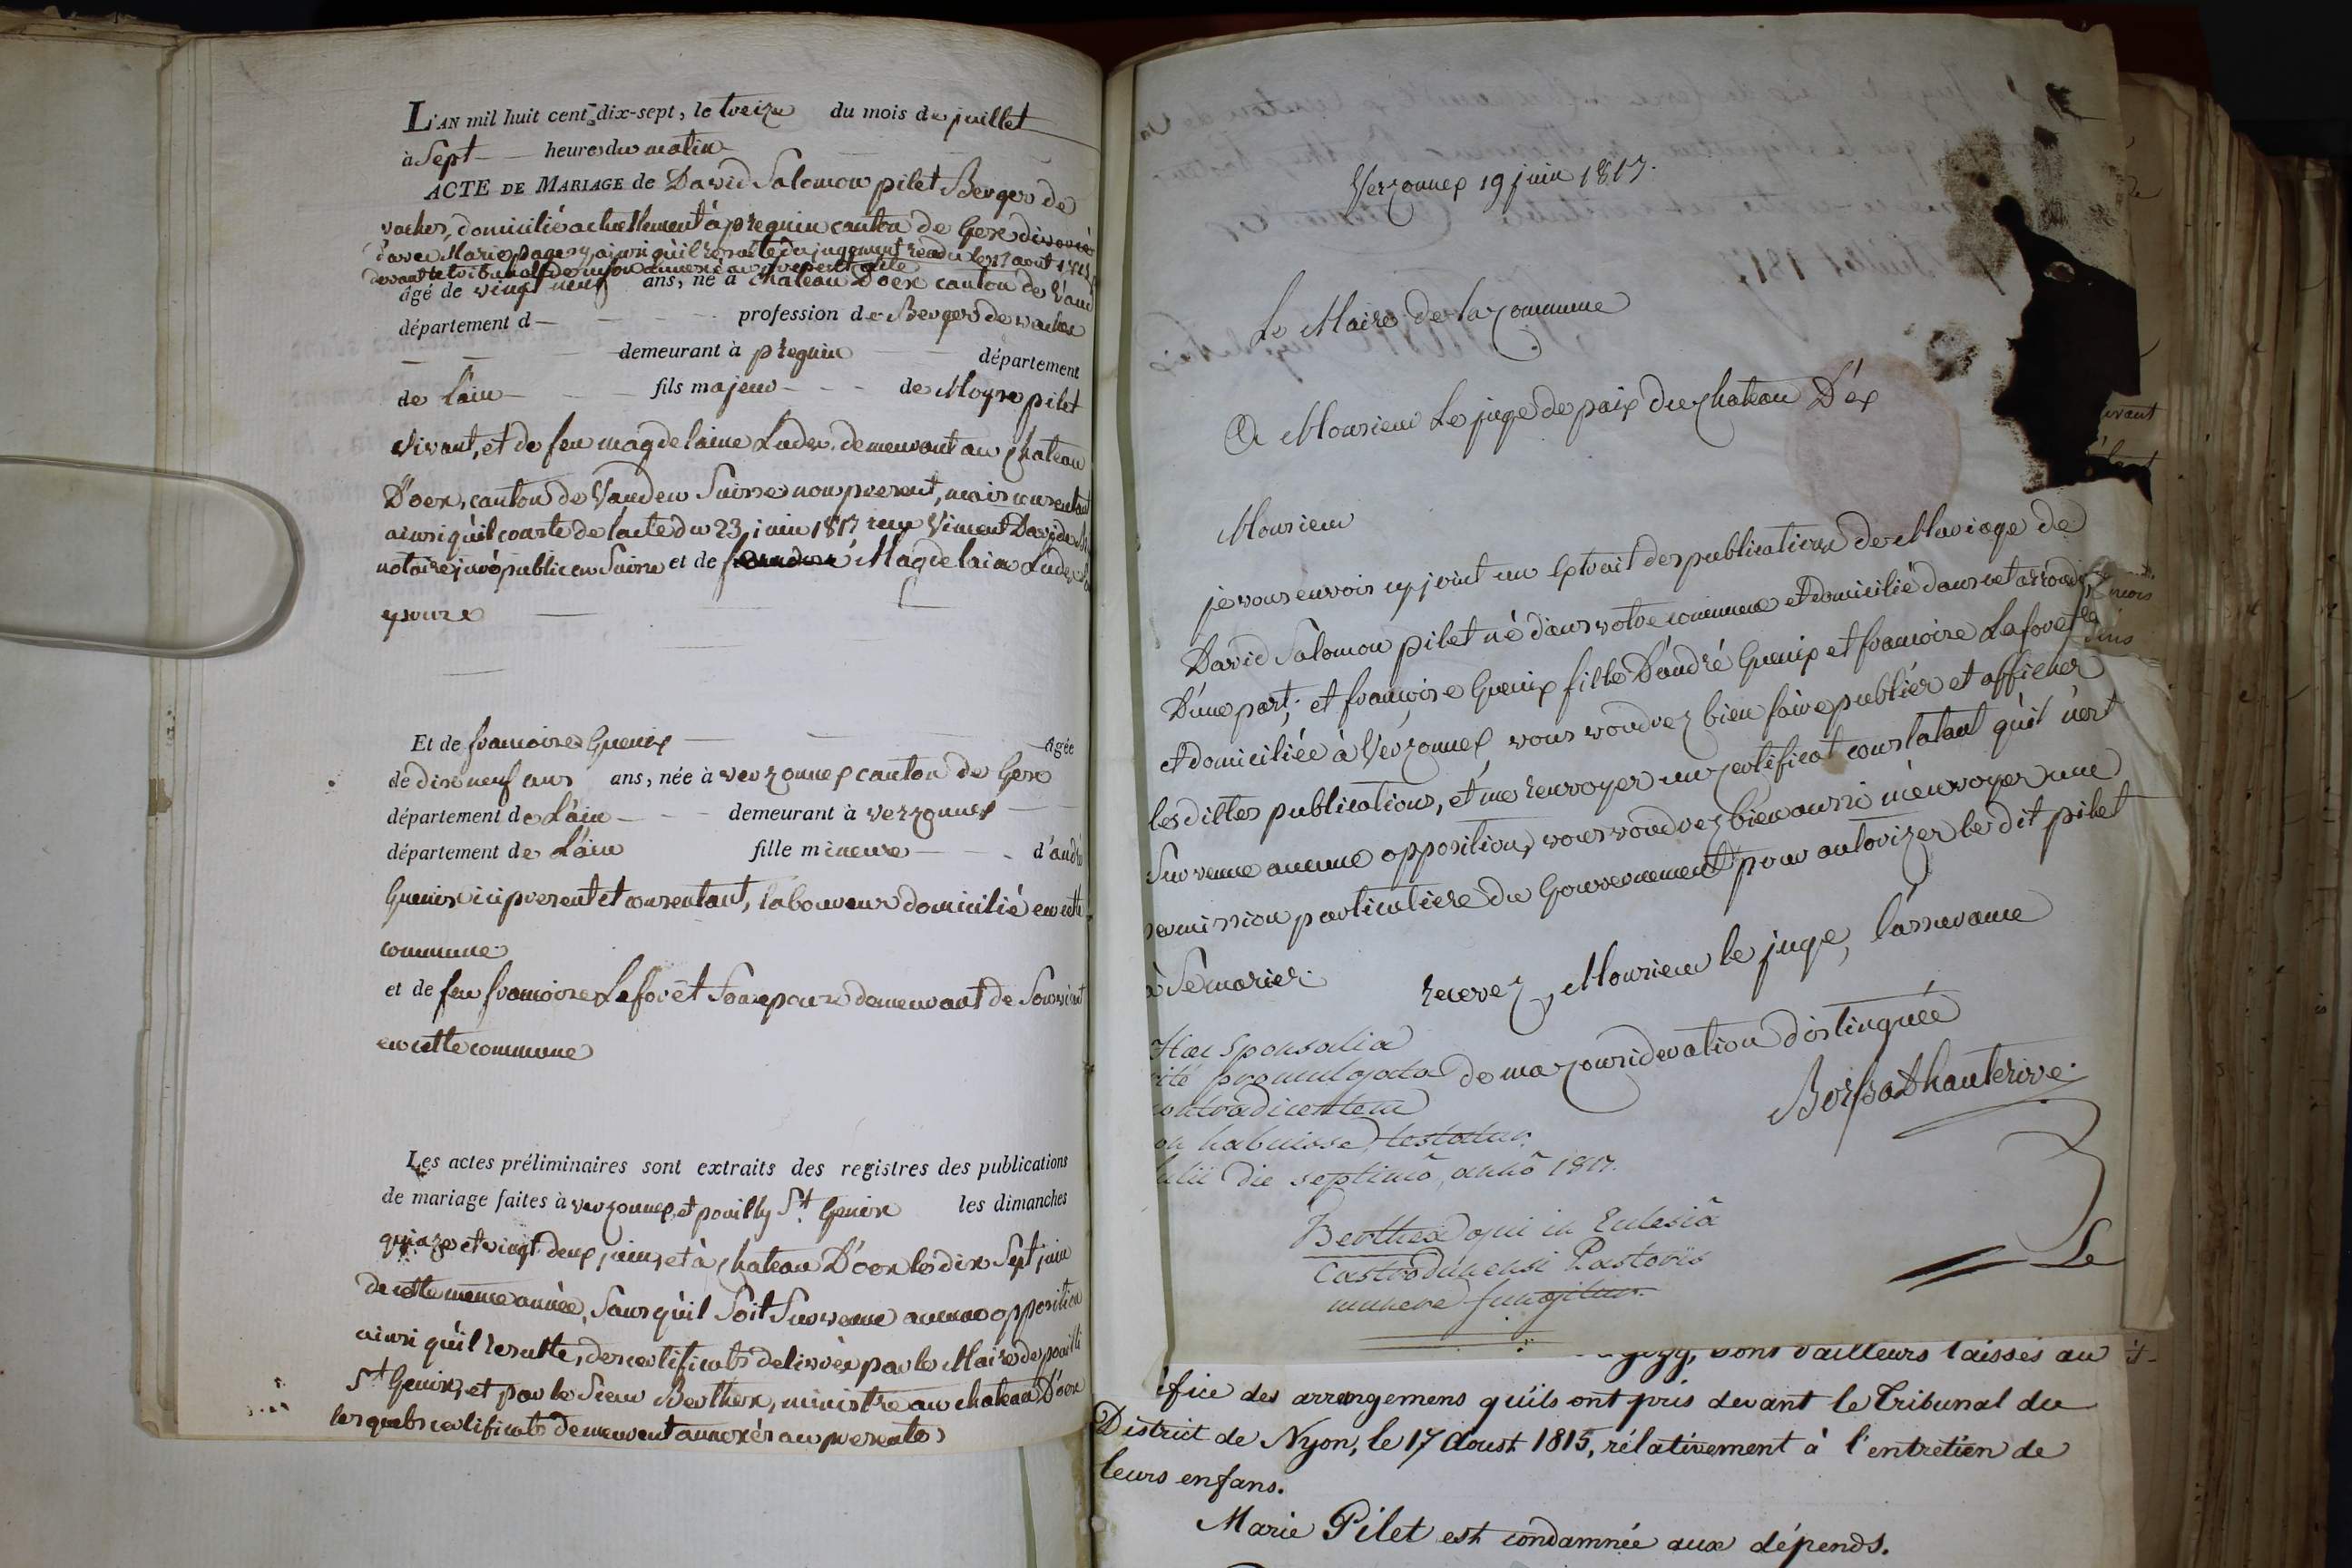 L'AN mil huit cent dix-sept, le treize du mois de juillet
à Sept heures du matin
ACTE DE MARIAGE de David Salomon pilet Berger de
vaches, domicilié actuellement à pregnin canton de Gex divorcé
d'avec Marie ainsi qu'il resulte du jugement rendu le 17 aout
devant le tribunal de annexé au present acte
âgé de vingt neuf ans, né à Chateau D'oex canton de Vaud
département d profession de Berger de vaches
demeurant à pregnin département
de L'ain fils majeur de Moyse pilet
vivant, et de feu magdelaine Luder, demeurant au Chateau
D'oex, canton de Vaud en Suisse non present, mais consentant
ainsi qu'il conste de l'acte du 23 juin 1817 reçu Vincent David
notaire juré public en Suisse et de Magdelaine Luder
epouse
Et de francoise Guenix Agée
de dix neuf ans ans, née à verzonnex canton de Gex
département de L'ain demeurant à verzonnex
département de L'ain fille mineure d'andré
Guenix ici present et consentant, laboureur domicilié en cette
commune
et de feu francoise Laforêt Son epouse demeurant de Son vivant
en cette commune
Les actes préliminaires sont extraits des registres des publications
de mariage faites à verzonnex et pouilly St. Genix les dimanches
quinze et vingt deux juin, et à Chateau D'oex le dix Sept juin
de cette meme année, Sans qu'il Soit Survenue aucune opposition
ainsi qu'il resulte, des certificats delivrés par le Maire de pouilli
St Genix, et par le Sieur Berthex, ministre au chateau D'oex
lesquels certificats demeurent annexés au presente
Verzonnex 19 juin 1817.
Le Maire de la Commune
A Monsieur Le juge de paix du Chateau D'éx
Monsieur
je vous envois cy joint un Extrait des publications de Mariage de
David Salomon pilet né dans votre commune et domicilié dans cet
D'une part; et françoise Guenix fille D'andré Guenix et francoise Laforet
et domiciliée à Verzonnex, vous voudrez bien faire publier et afficher
les dittes publications, et me renvoyer un Certificat constatant qu'il n'est
Survenue aucune opposition, vous voudrez bien aussi m'envoyer une
permission particuliere du Gouvernement pour autorizer le dit pilet
à Se marier. recevez, Monsieur le juge, l'assurance
de ma Consideration distinguée
Hæc Sponsalia
rité promulgata
contradicentem
non habuisse testatur.
Julii die septimô, annô 1817.
Berthex qui in Eclesiâ
Castrodunensi Pastoris
munere fungitur.
Le
sont d'ailleurs laissés au
éfice des arrangemens qu'ils ont pris devant le Tribunal du
District de Nyon, le 17 Aoust 1815, rélativement à l'entretien de
leurs enfans.
Marie Pilet est condamnée aux dépends.